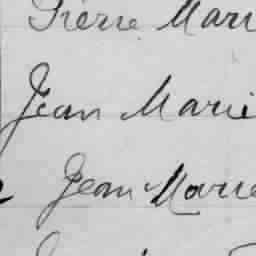 Pierre Mari
Jean Marie
Jean Marie